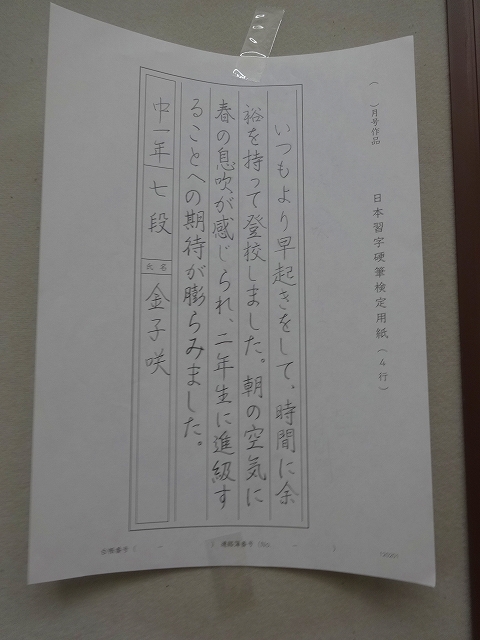 ( )月号作品
日本習字硬筆検定用紙(4行)
いつもより早起きをして、時間に余
裕を持って登校しました。朝の空気に
春の息吹が感じられ、二年生に進級す
ることへの期待が膨らみました。
中一年 七段 氏名 金子咲